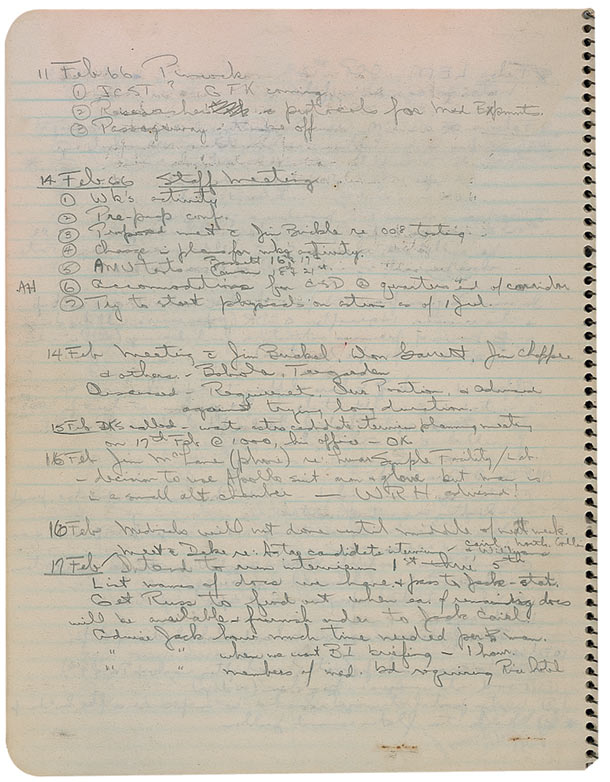 11 Feb 66
① ICST GTK coming
② protocols for med Expmnts.
③ Passageway take off
14 Feb 66 Staff Meeting
① Wk's activity
② Pre-prep conf.
③ Proposed meet c̄ Jim re 008 testing
④ Change in plans for wkg activity.
⑤ AMU tests
AH ⑥ Accommodations for CSD @ quarters end of corridor
⑦ Try to start physicals on astros as of 1 Jul.
14 Feb Meeting c̄ Jim Buckel, Don Garrett, Jim
& others - Teegarden
Discussed - Our Position, & advice
against trying long duration.
15 Feb DKS called - wants astro candidate interview planning meeting
on 17th Feb @ 1000, his office - OK
16 Feb Jim McLane (phone) re: Lunar Sample Facility/Lab.
- decision to use Apollo suit arm & glove but man is
in a small alt chamber — WRH advised!
16 Feb Medicals will not done until middle of next week
17 Feb Meet c̄ Deke re: Astro candidate interviews -
Intend to run interviews 1st thru 5th
List names of docs we have & pass to Jack - stat.
Get Russ to find out when ea. of remaining docs
will be available & furnish order to Jack Cairl
Advise Jack how much time needed per man.
" " when we want BI briefing - 1 hour.
" " members of med. bd requiring Rice Hotel